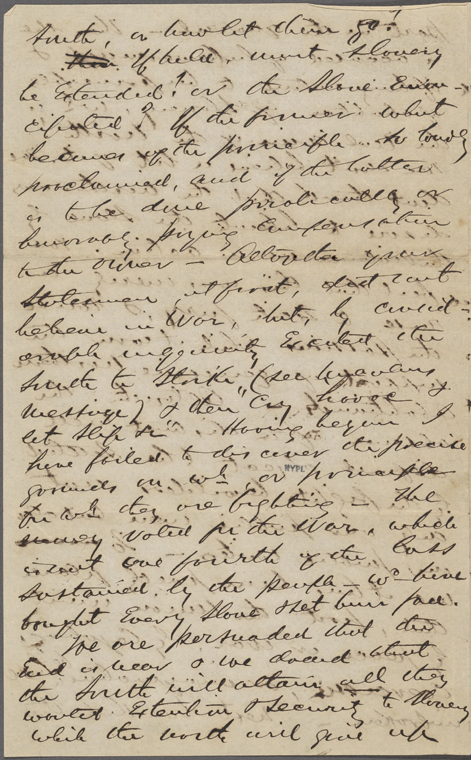 South, or how let them go?
If held, must Slavery
be Extended? or the Slave Eman-
cipated? If the former what
becomes of the principle so loudly
proclaimed, and if the latter
is to be done piratically or
honorably paying Compensation
to the Owner – your
Statesmen, at first, did not
believe in War, but, by consid-
erable ingenuity Excited the
South to "Strike" (see
Message) & then "Cry havoc &
let slip &c" Having begun I
have failed to discover the precise
grounds on wh. or principle
NYPL
for wh. they are fighting – The
money voted for the War, which
is not one fourth of the Loss
sustained by the people – wd. have
bought Every Slave & set him free.
We are persuaded that the
End is near & we dread that
the South will attain all they
wanted Extention & security to Slavery
while the north will give up